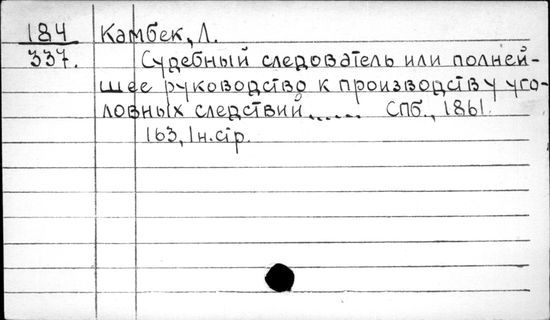 184 Камбек, Л.
337. Судебный следователь или полней-
шее руководство к производству уго-
ловных следствий...... СПб., 1861.
163, 1 н.стр.